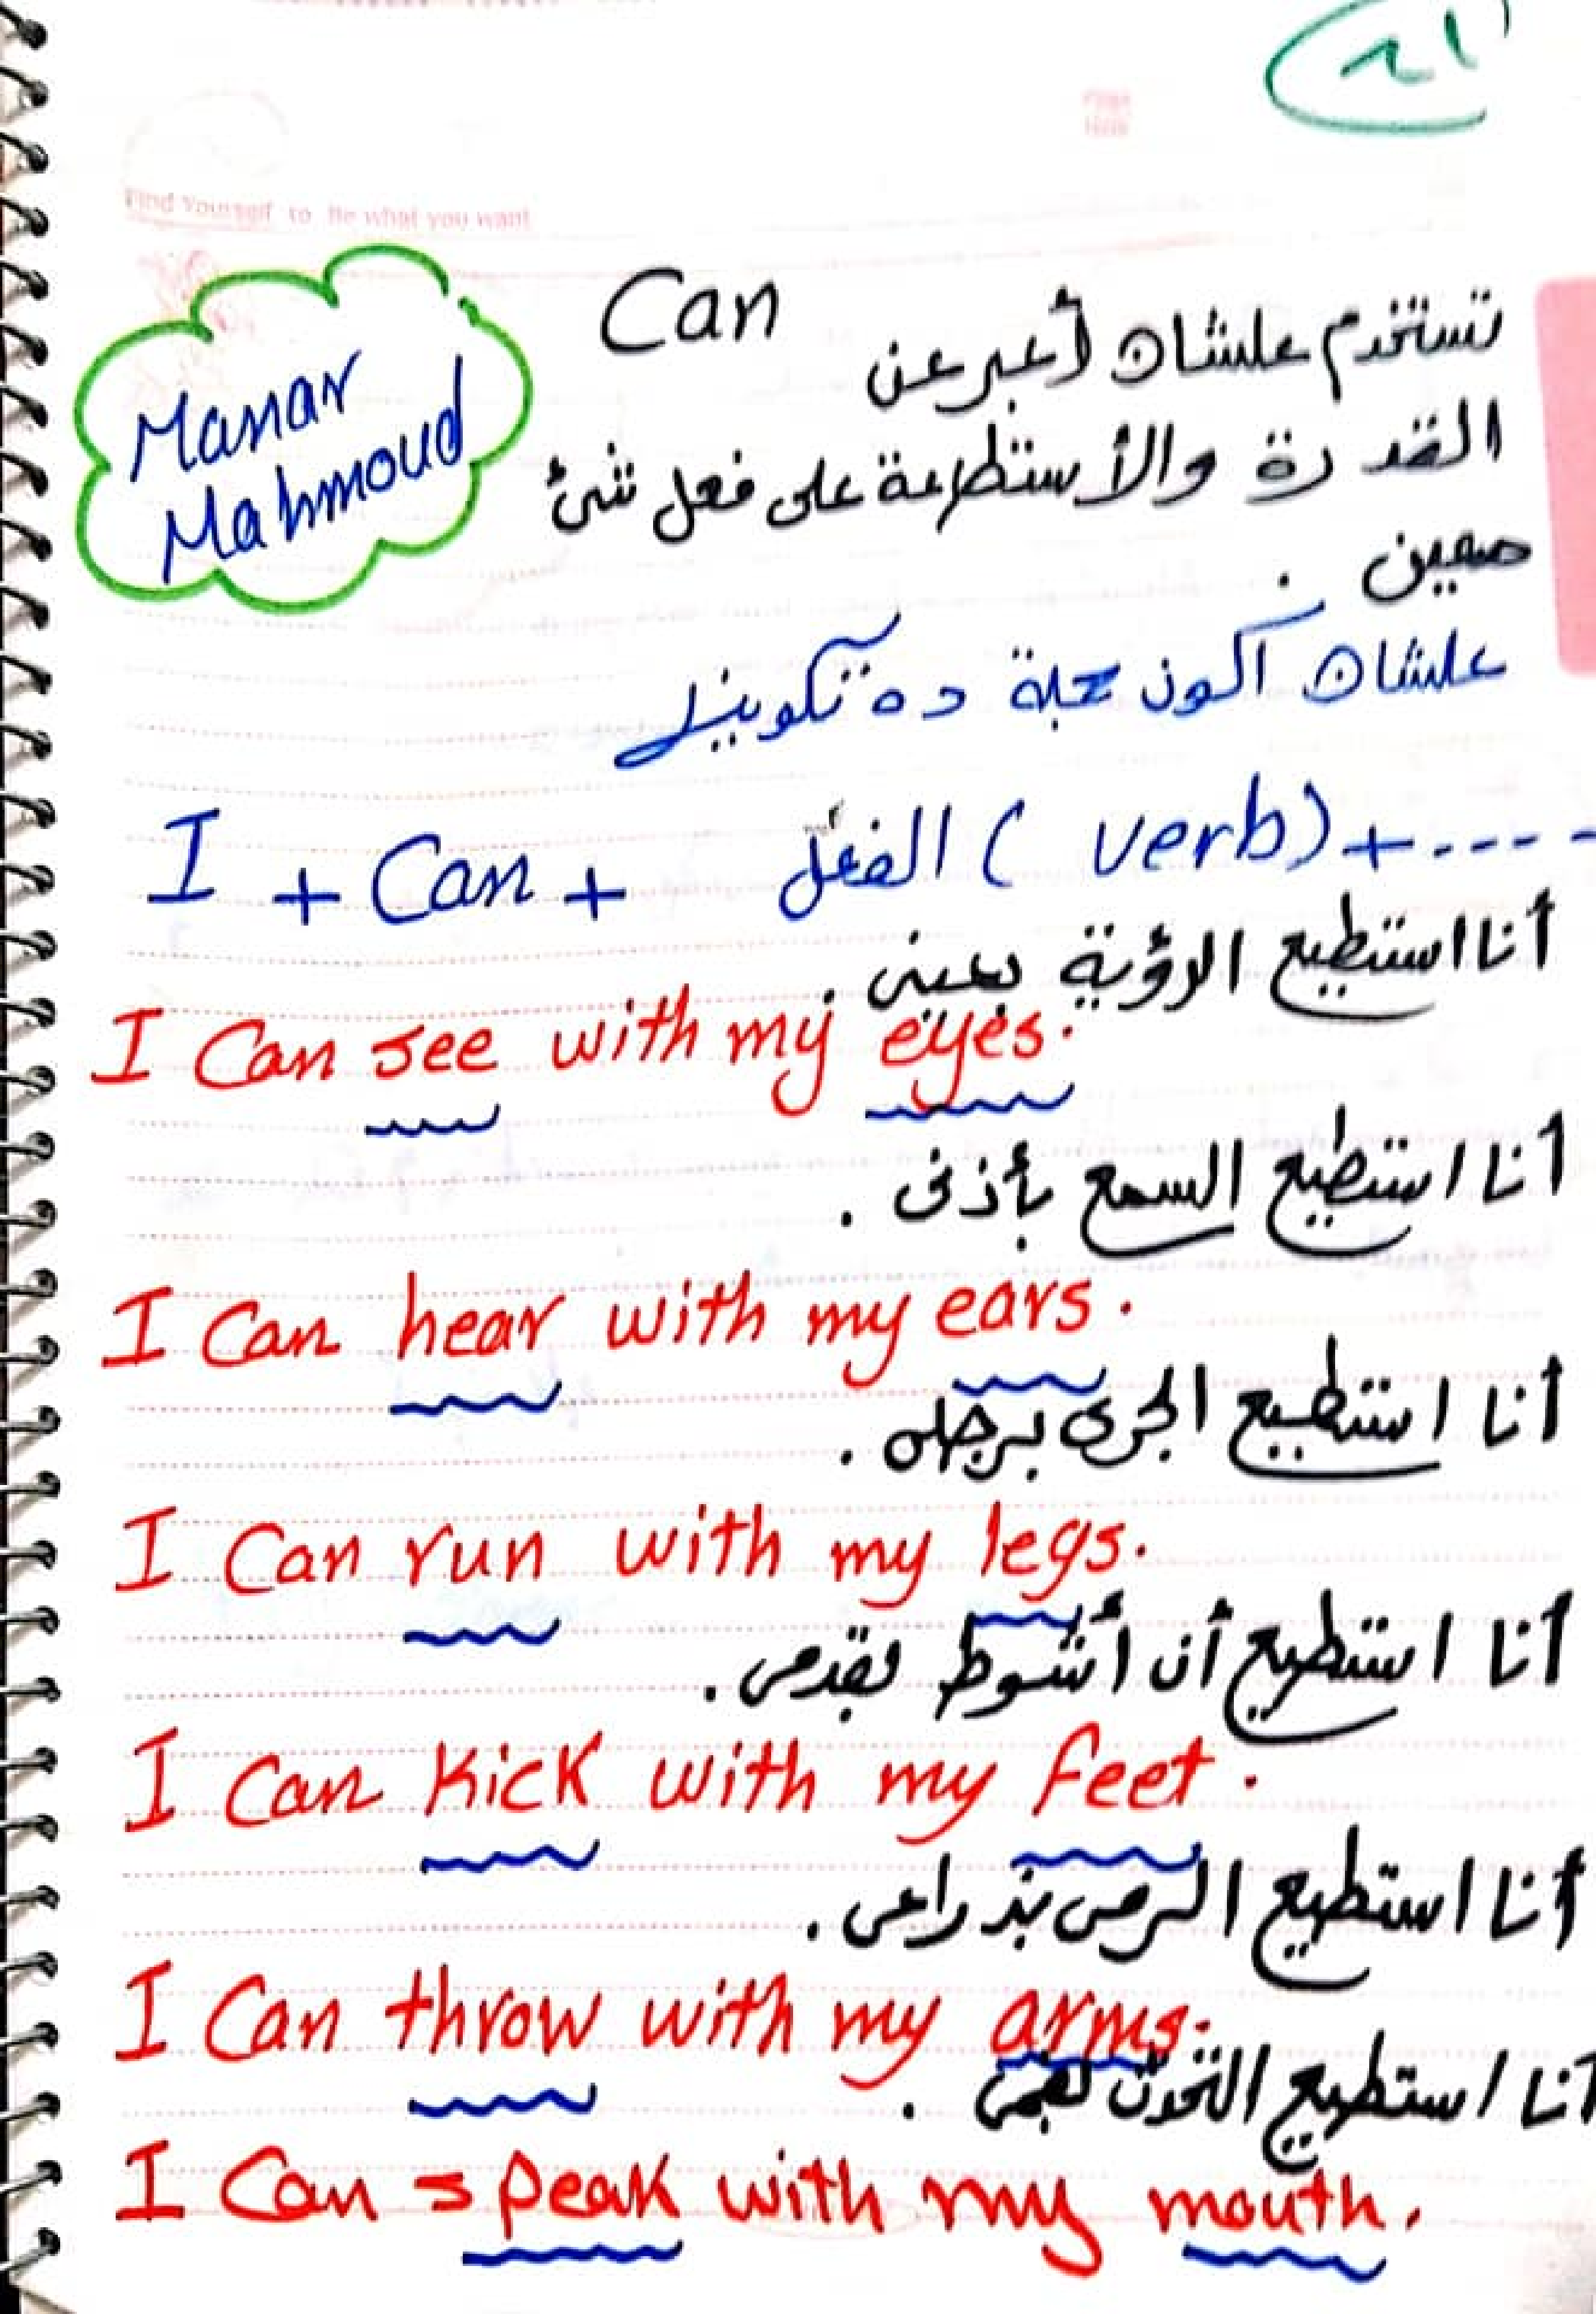 ٢١
Find Yourself to Be what you want
Can
تستخدم علشان أعبر عن
القدرة والأستطاعة على فعل شئ
معين .
Manar
Mahmoud
علشان أكون جملة ده تكوينها
I + Can + الفعل ( verb) + - - - -
أنا استطيع الرؤية بعينى .
I Can see with my eyes.
أنا استطيع السمع بأذنى .
I Can hear with my ears.
أنا استطيع الجرى برجلى .
I Can run with my legs.
أنا استطيع أن أشوط بقدمى .
I Can kick with my feet.
أنا استطيع الرمى بذراعى .
I Can throw with my arms.
أنا استطيع التحدث بفمى .
I Can speak with my mouth.